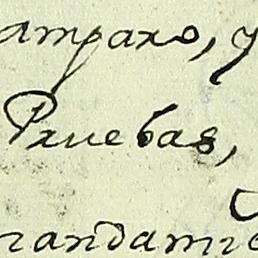 amparo, y
Pruebas,
randamie